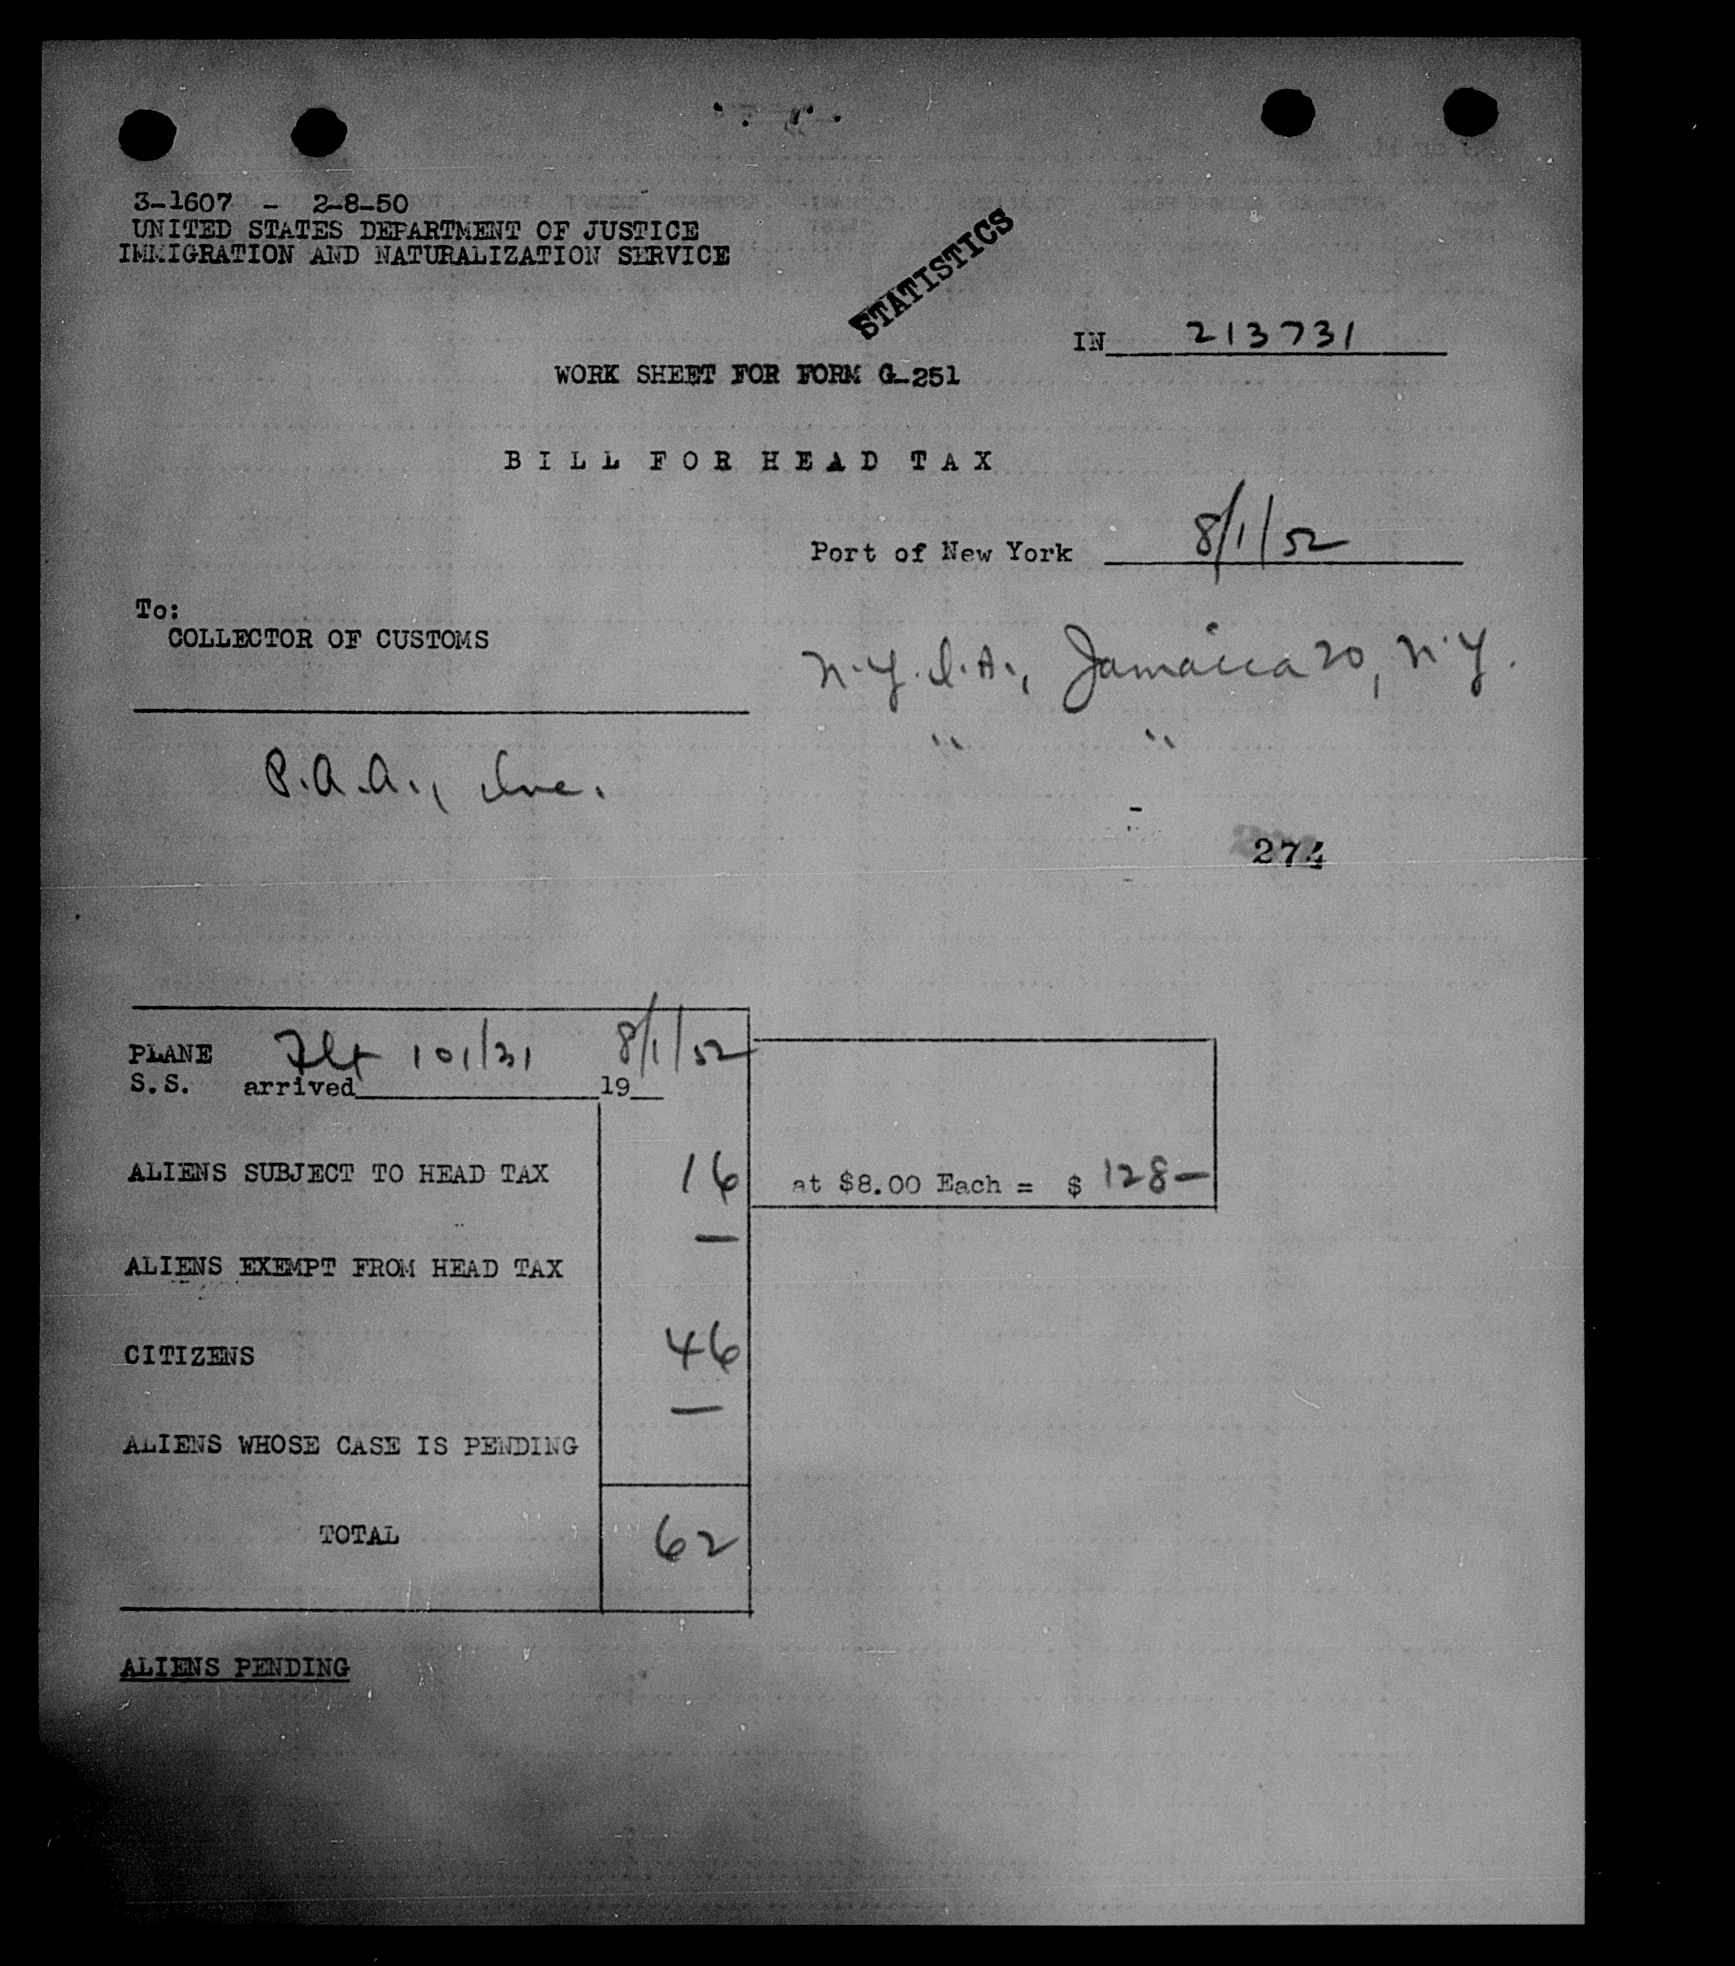 3-1607 - 2-8-50
UNITED STATES DEPARTMENT OF JUSTICE
IMMIGRATION AND NATURALIZATION SERVICE
STATISTICS
IN 213731
WORK SHEET FOR FORM G-251
BILL FOR HEAD TAX
Port of New York 8/1/52
To:
COLLECTOR OF CUSTOMS
N.Y.I.A., Jamaica 20, N.Y.
" "
P.A.A., Inc.
274
PLANE Flt 101/31 8/1/52
S.S. arrived 19
ALIENS SUBJECT TO HEAD TAX 16 at $8.00 Each = $ 128—
ALIENS EXEMPT FROM HEAD TAX —
CITIZENS 46
ALIENS WHOSE CASE IS PENDING —
TOTAL 62
ALIENS PENDING